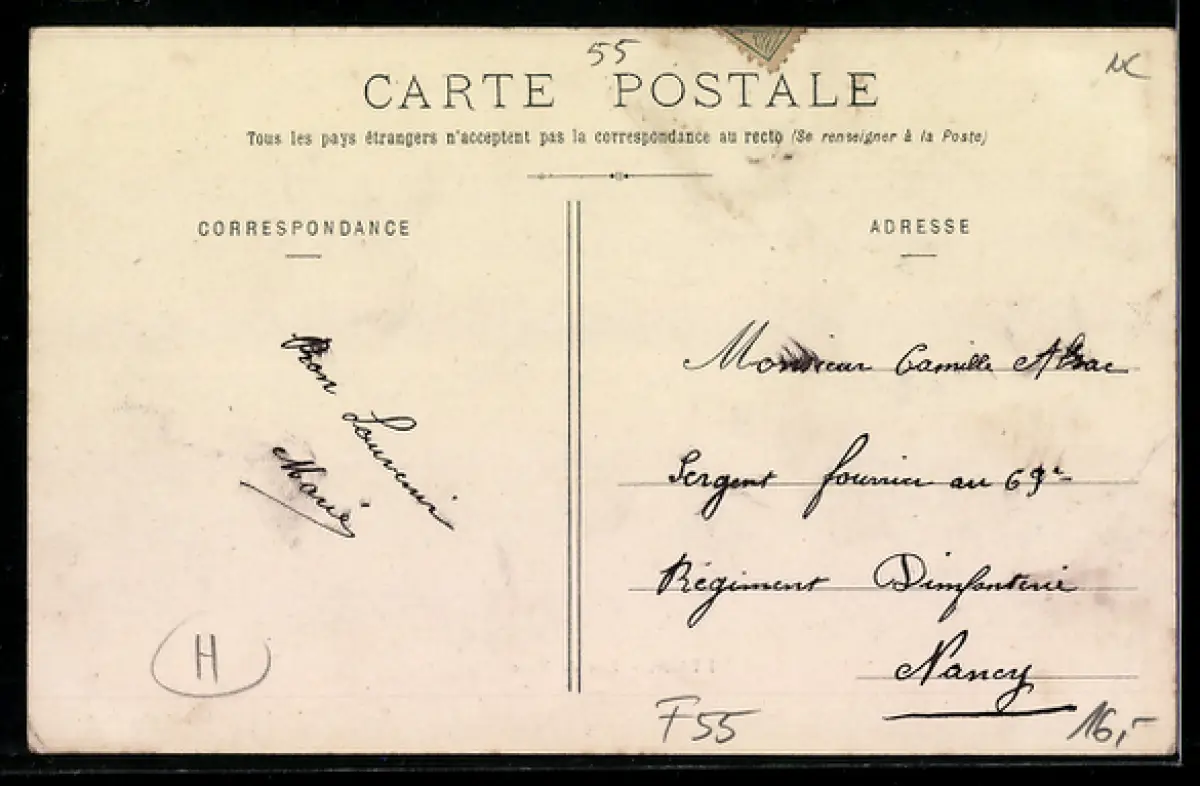 55
CARTE POSTALE
Tous les pays étrangers n'acceptent pas la correspondance au recto (Se renseigner à la Poste)
CORRESPONDANCE
ADRESSE
Bon Souvenir
Marie
Monsieur Camille
Sergent fourrier au 69e
Régiment D'infanterie
Nancy
H
F55
16,-